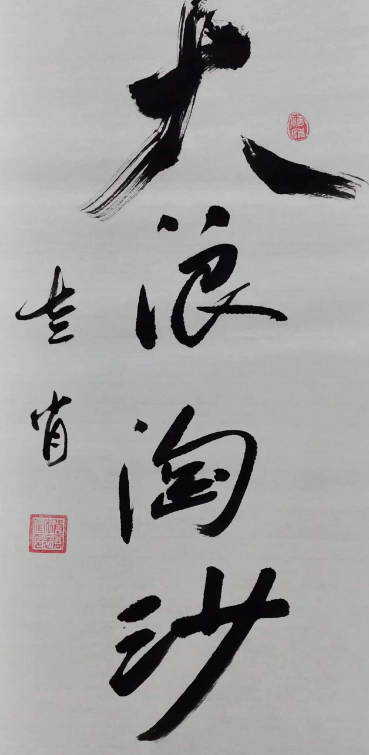 大浪淘沙
肖